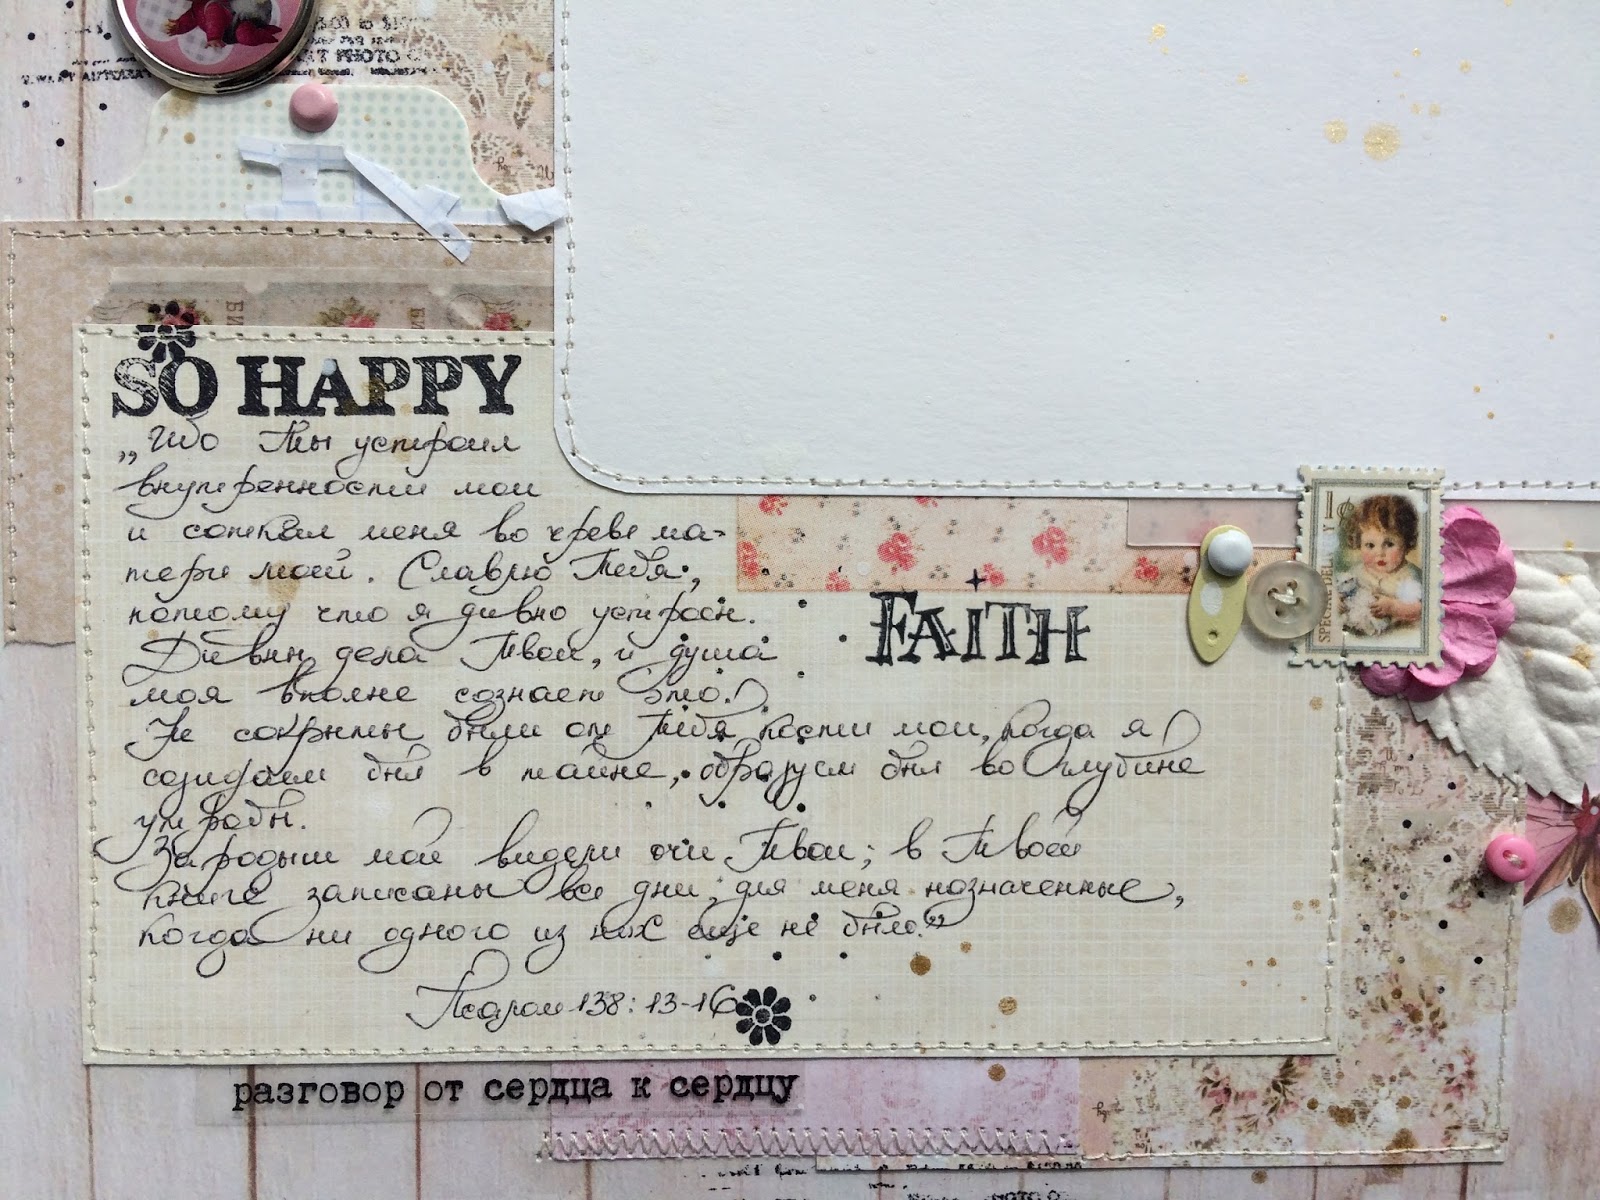 PHOTO
SO HAPPY
„Ибо Ты устроил
внутренности мои
и соткал меня во чреве ма-
тери моей. Славлю Тебя,
потому что я дивно устроен.
Дивны дела Твои, и душа
моя вполне сознает это.
Не сокрыты были от Тебя кости мои, когда я
созидаем был в тайне, образуем был во глубине
утробы.
Зародыш мой видели очи Твои; в Твоей
книге записаны все дни, для меня назначенные,
когда ни одного из них еще не было."
Псалом 138:13-16
FAITH
1¢
SPECIAL DELIVERY
разговор от сердца к сердцу